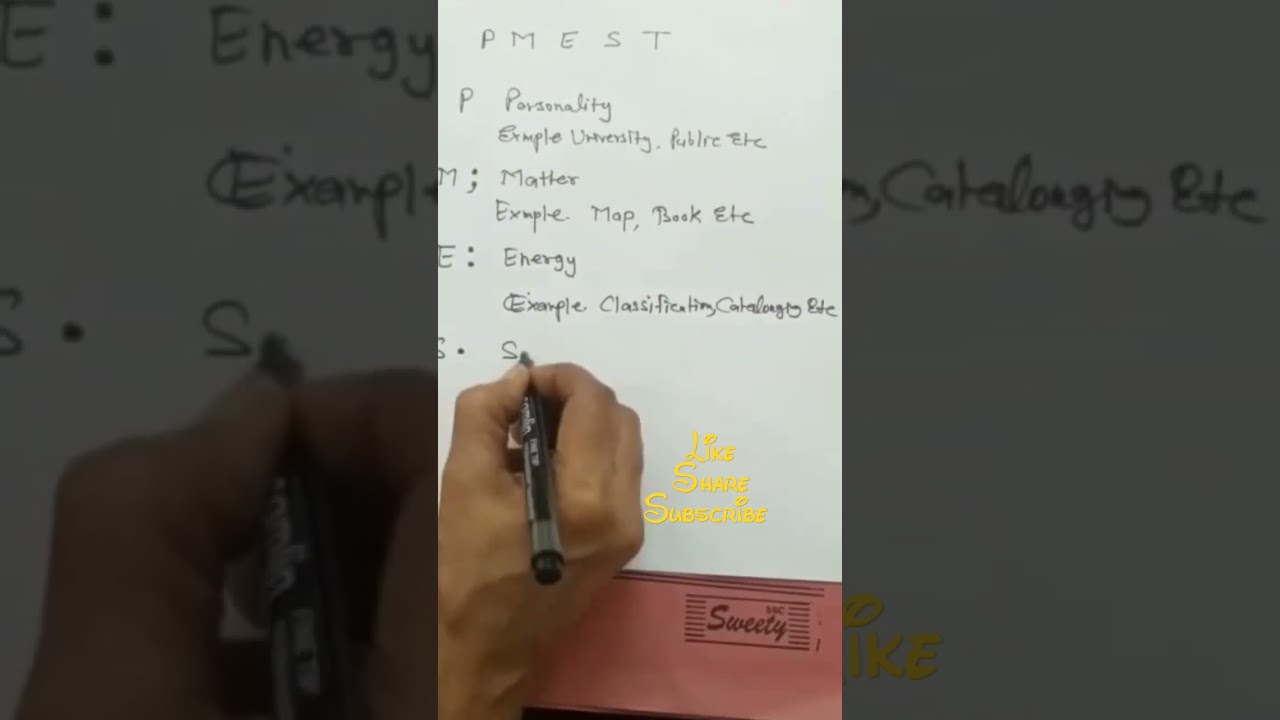 P M E S T
P Parsonality
Exmple University, Public Etc
M ; Matter
Exmple. Map, Book Etc
E : Energy
Example. Classification, Cataloging Etc
S . S
Like
Share
Subscribe
SSC
Sweety
E : Energy
Example
Cataloging Etc
S . S